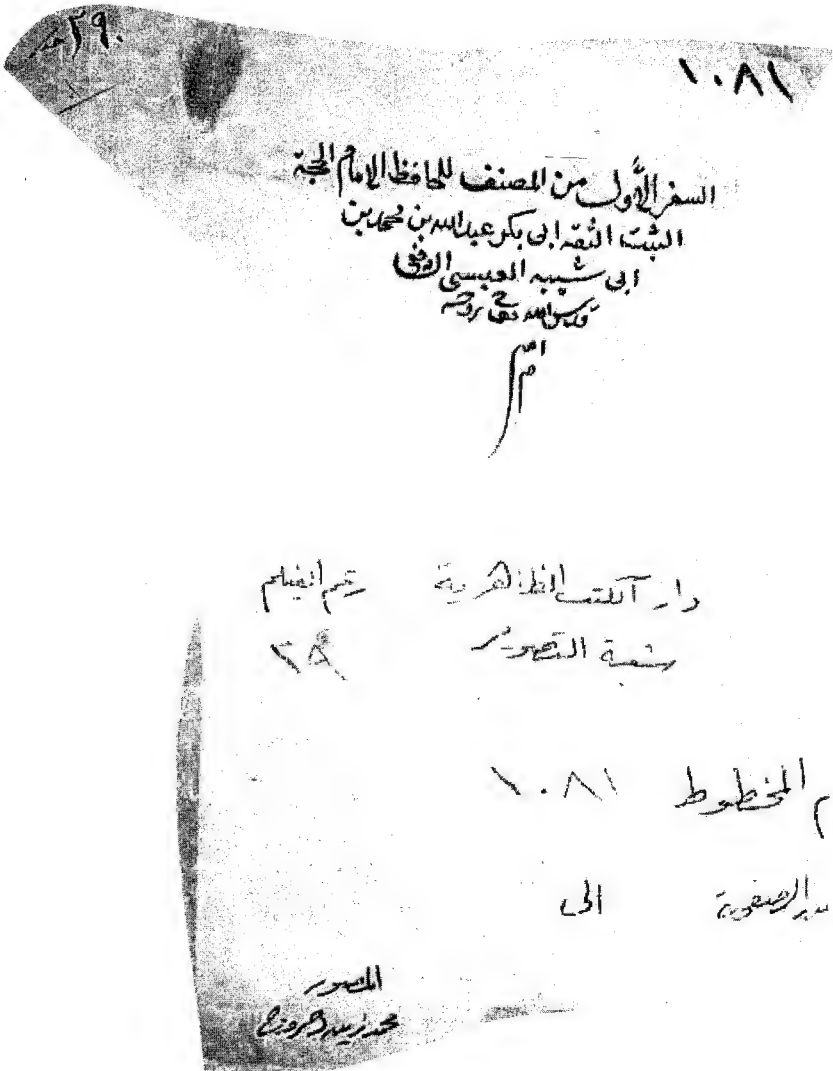 ١٠٨١
٢٩٠
السفر الأول من المصنف للحافظ الإمام الحجة
الثبت الثقة ابى بكر عبد الله بن محمد بن
ابى شيبه العبسى الكوفى
قدس الله تعالى روحه
دار الكتب الظاهرية رقم الفيلم
شعبة التصوير
م المخطوط ١٠٨١
الصفحة الى
المصور
محمد